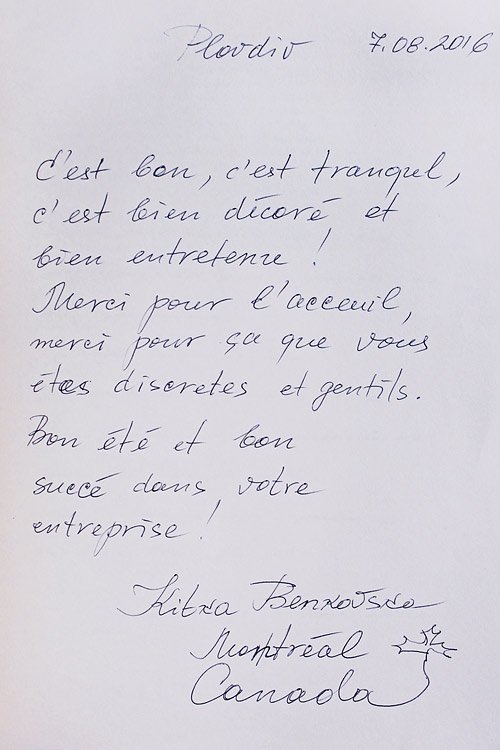 Plovdiv 7.08.2016
C'est bon, c'est tranquel,
c'est bien décoré et
bien entretenue !
Merci pour l'acceuil,
merci pour ça que vous
êtes discretes et gentils.
Bon été et bon
succé dans votre
entreprise !
Kitka Benkovska
Montréal
Canada